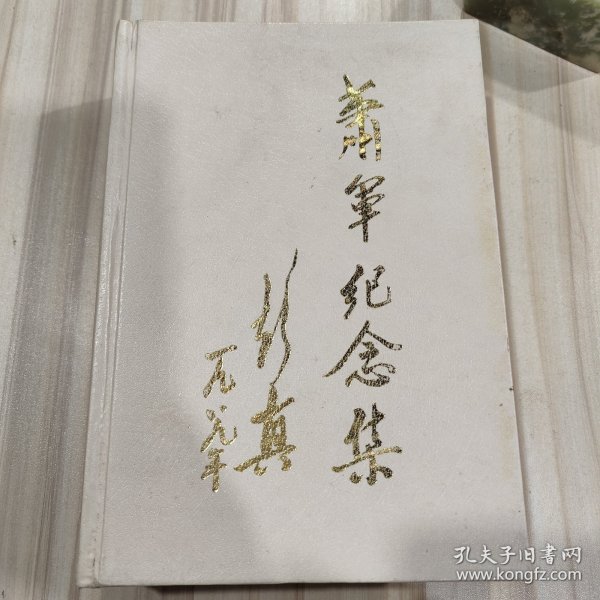 萧军纪念集
彭真
一九八九年
孔夫子旧书网
www.kongfz.com